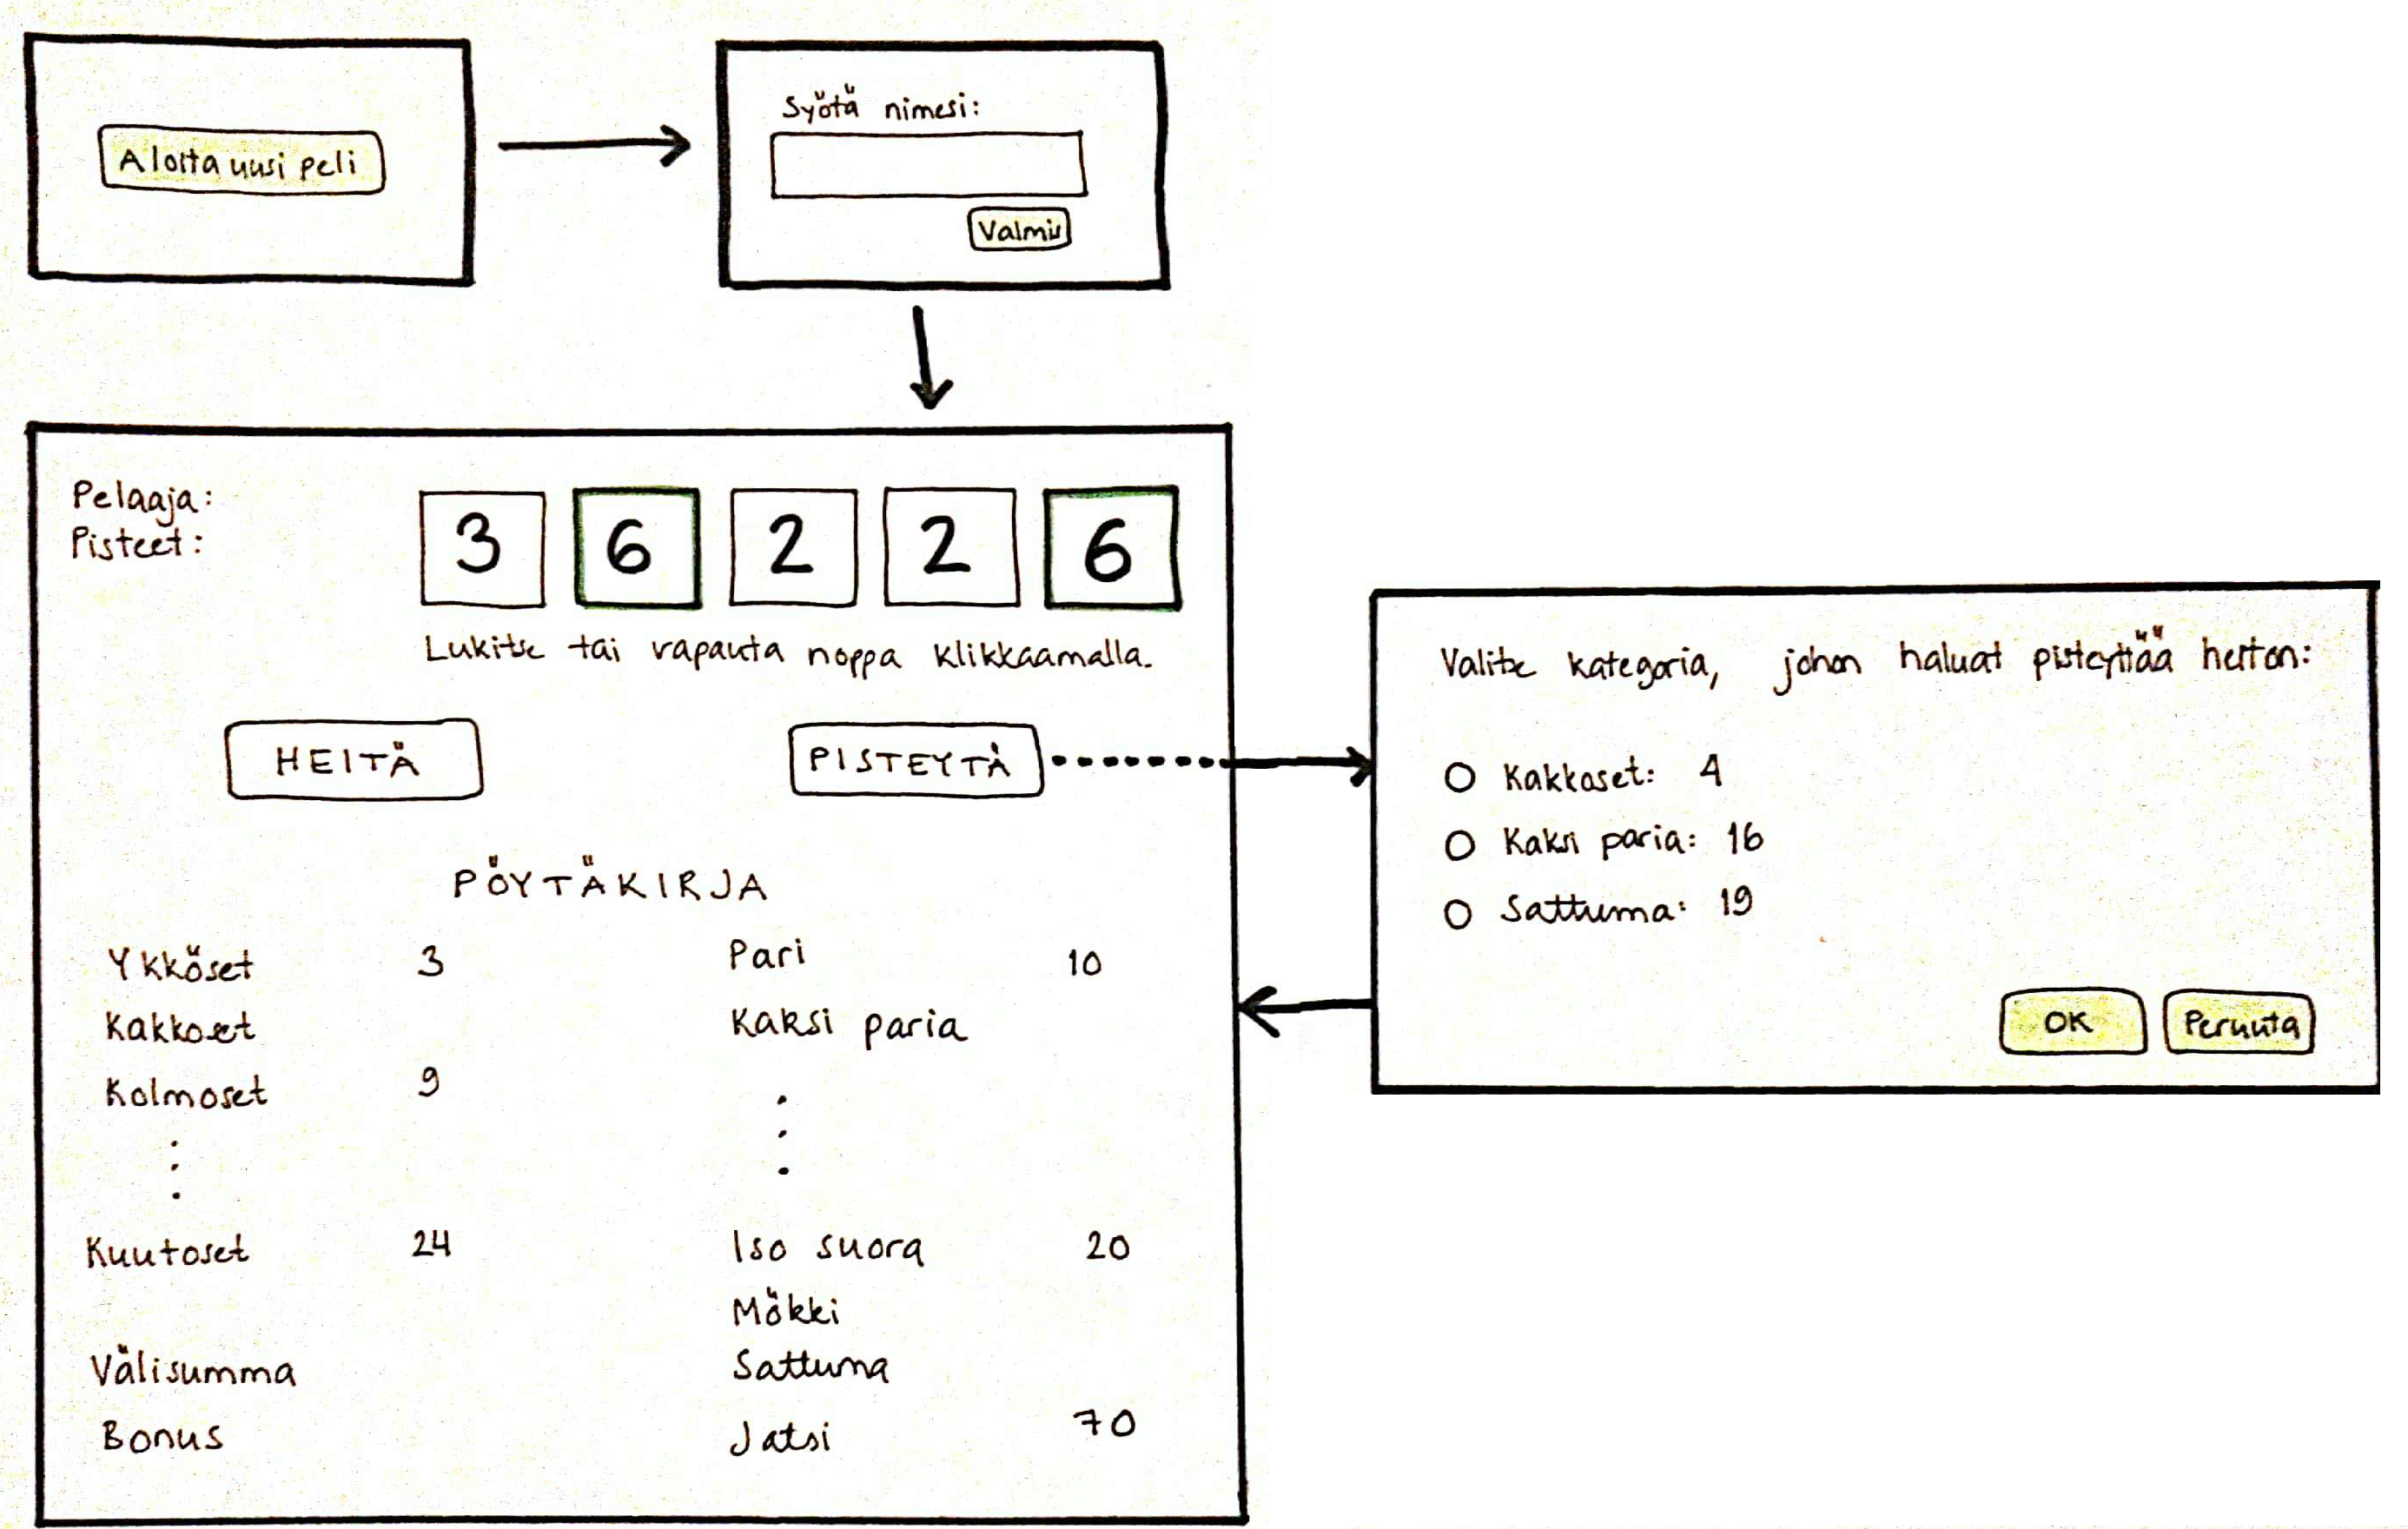 Aloita uusi peli
Syötä nimesi:
Valmis
Pelaaja:
Pisteet:
3 6 2 2 6
Lukitse tai vapauta noppa klikkaamalla.
HEITÄ PISTEYTÄ
PÖYTÄKIRJA
Ykköset 3
Kakkoset
Kolmoset 9
Kuutoset 24
Välisumma
Bonus
Pari 10
Kaksi paria
Iso suora 20
Mökki
Sattuma
Jatsi 70
Valitse kategoria, johon haluat pisteyttää heiton:
Kakkoset: 4
Kaksi paria: 16
Sattuma: 19
OK Peruuta